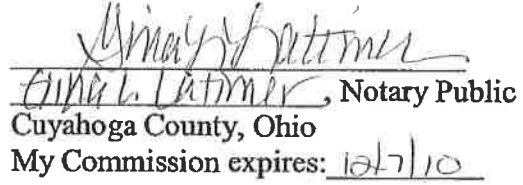 Gina L Latimer
Gina L. Latimer, Notary Public
Cuyahoga County, Ohio
My Commission expires: 12/7/10